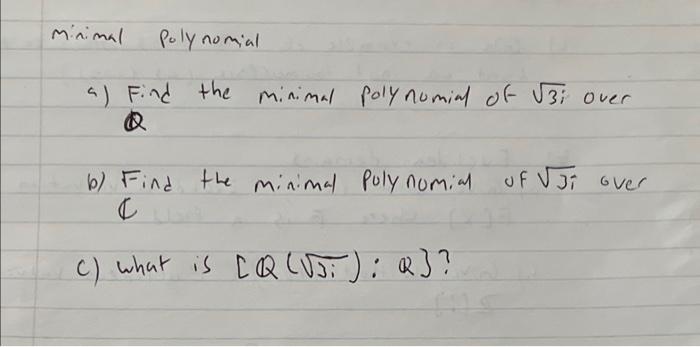 minimal polynomial
a) Find the minimal polynomial of √3i over
Q
b) Find the minimal polynomial of √3i over
C
c) what is [Q(√3i) : Q]?